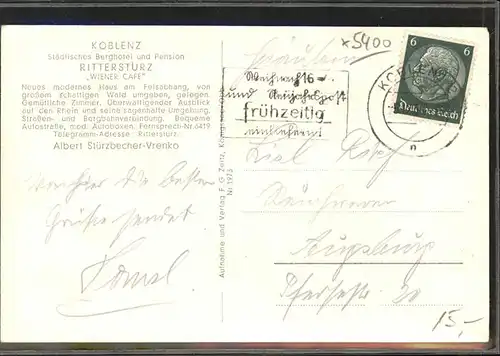 KOBLENZ
Städtisches Berghotel und Pension
RITTERSTURZ
„WIENER CAFE"
Neues modernes Haus am Felsabhang, von
großem schattigen Wald umgeben, gelegen.
Gemütliche Zimmer. Überwältigender Ausblick
auf den Rhein und seine sagenhafte Umgebung.
Straßen- und Bergbahnverbindung. Bequeme
Autostraße, mod. Autoboxen. Fernsprech-Nr. 6419
Telegramm-Adresse: Rittersturz.
Albert Stürzbecher-Vrenko
Von hier die besten
Grüße sendet
Aufnahme und Verlag F. G. Zeitz, Königsee
Nr. 1975
x5400
Fräulein
Weihnachts-
und Neujahrspost
frühzeitig
einliefern!
KOBLENZ
n
6 6
Deutsches Reich
Augsburg
20
15,-